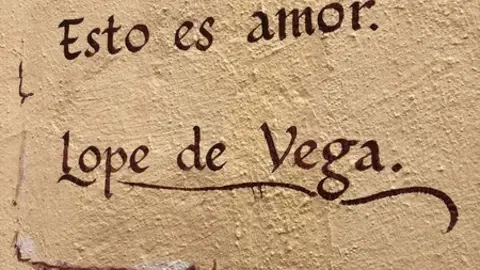 Esto es amor.
Lope de Vega.